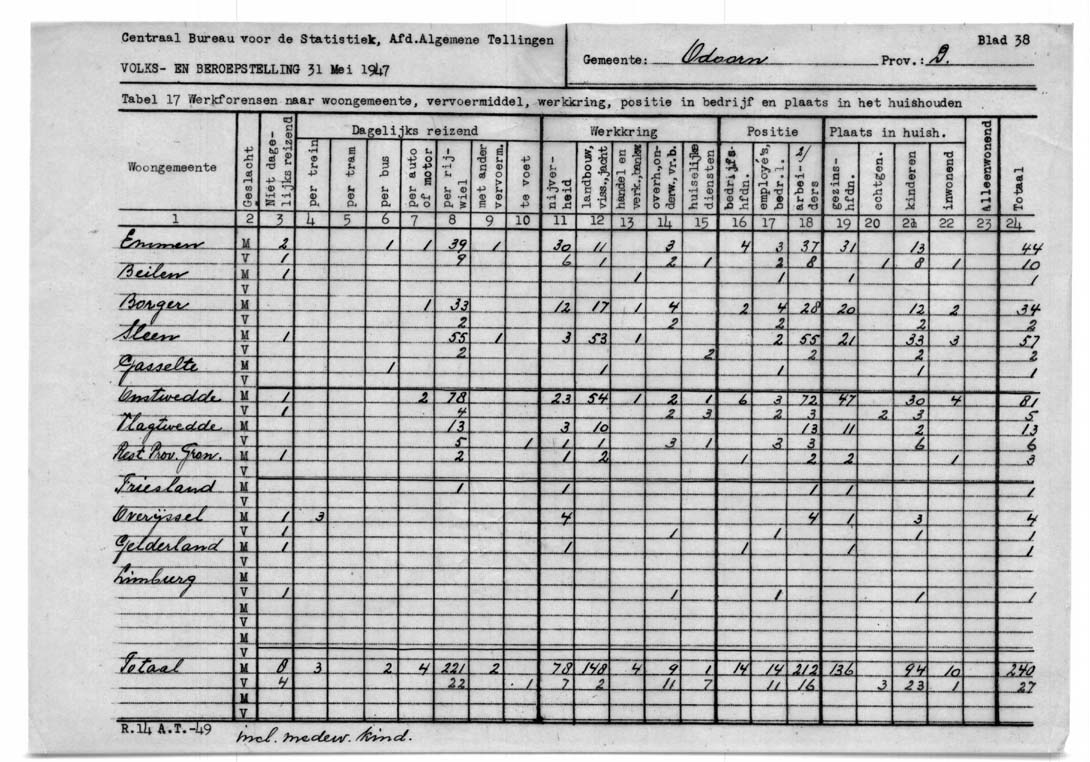 Centraal Bureau voor de Statistiek, Afd.Algemene Tellingen
VOLKS- EN BEROEPSTELLING 31 Mei 1947
Gemeente: Odoorn Prov.: D. Blad 38
Tabel 17 Werkforensen naar woongemeente, vervoermiddel, werkkring, positie in bedrijf en plaats in het huishouden
Woongemeente Geslacht Niet dage-lijks reizend Dagelijks reizend Werkkring Positie Plaats in huish. Alleenwonend Totaal
per trein per tram per bus per auto of motor per rij-wiel met ander vervoerm. te voet nijver-heid landbouw, viss., jacht handel en verk., bankw overh, on-derw, vr.b. huiselijke diensten bedrijfs-hfdn. employé's, bedr.l. arbei-ders 2/ gezins-hfdn. echtgen. kinderen inwonend
1 2 3 4 5 6 7 8 9 10 11 12 13 14 15 16 17 18 19 20 21 22 23 24
Emmen M 2 1 1 39 1 30 11 3 4 3 37 31 13 44
V 1 9 6 1 2 1 2 8 1 8 1 10
Beilen M 1 1 1 1 1
V
Borger M 1 33 12 17 1 4 2 4 28 20 12 2 34
V 2 2 2 2 2
Sleen M 1 55 1 3 53 1 2 55 21 33 3 57
V 2 2 2 2 2
Gasselte M 1 1 1 1 1
V
Onstwedde M 1 2 78 23 54 1 2 1 6 3 72 47 30 4 81
V 1 4 2 3 2 3 2 3 5
Vlagtwedde M 13 3 10 13 11 2 13
V 5 1 1 1 3 1 3 3 6 6
Rest Prov. Gron. M 1 2 1 2 1 2 2 1 3
V
Friesland M 1 1 1 1 1
V
Overijssel M 1 3 4 4 1 3 4
V 1 1 1 1 1
Gelderland M 1 1 1 1 1
V
Limburg M
V 1 1 1 1 1
M
V
M
V
Totaal M 8 3 2 4 221 2 78 148 4 9 1 14 14 212 136 94 10 240
V 4 22 1 7 2 11 7 11 16 3 23 1 27
M
V
R.14 A.T.-49 incl. medew. kind.